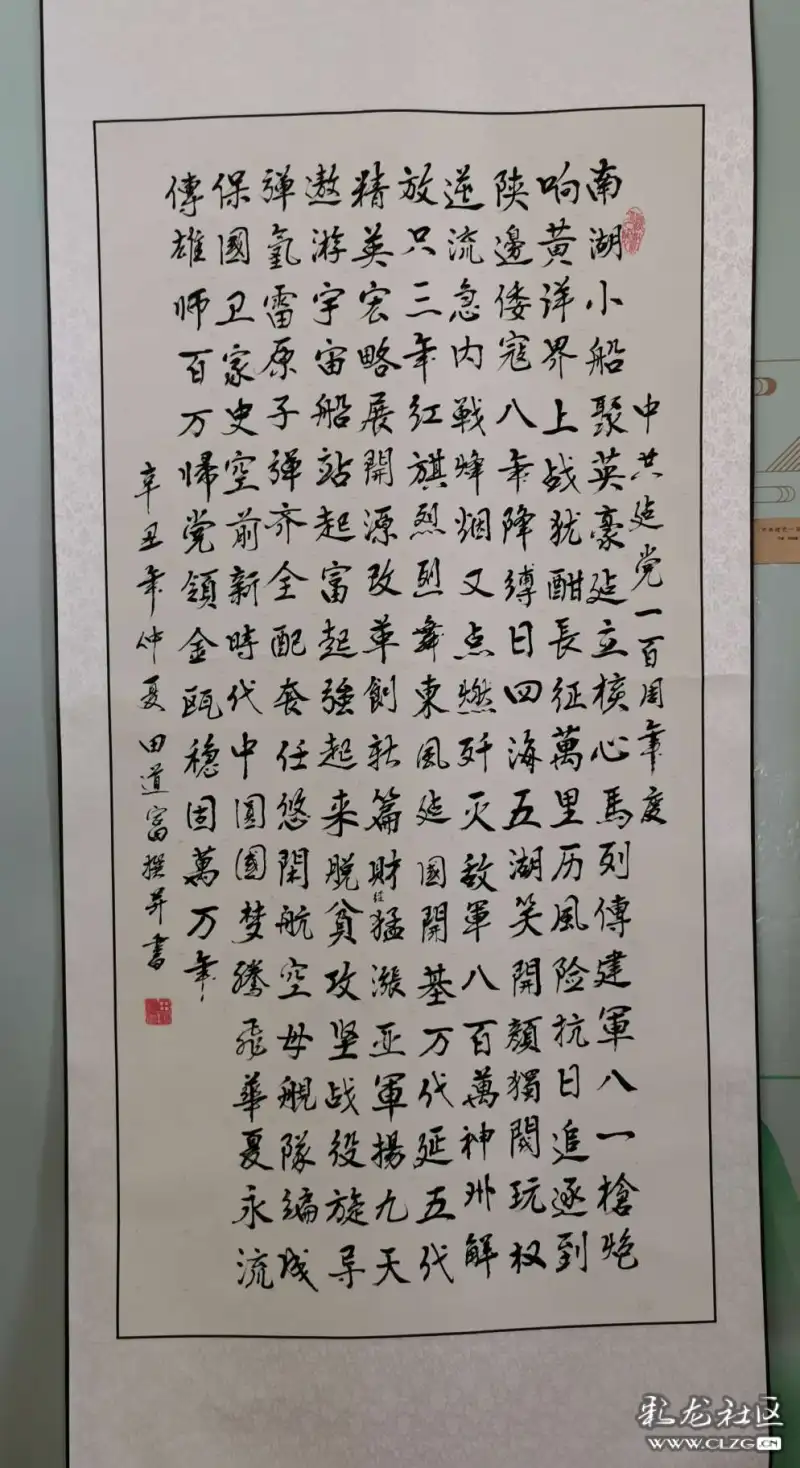 中共延党一百周年度
南湖小船聚英豪延立核心馬列傳建軍八一槍炮
响黄洋界上战犹酣長征萬里历風险抗日追逐到
陕邊倭寇八年降縛日四海五湖笑開顏獨閥玩权
逆流急内戰烽烟又点燃歼灭敌軍八百萬神州解
放只三年红旗烈烈舞東風延國開基万代延五代
精英宏略展開源改革創新篇財经猛漲亚軍揚九天
遨游宇宙船站起富起強起来脱貧攻坚战役旋导
弹氢雷原子弹齐全配套任悠閑航空母舰隊編成
保國卫家史空前新時代中國國梦騰飛華夏永流
傳雄师百万歸党領金瓯穩固萬万年
辛丑年仲夏田道富撰并書
彩龙社区
WWW.CLZG.CN